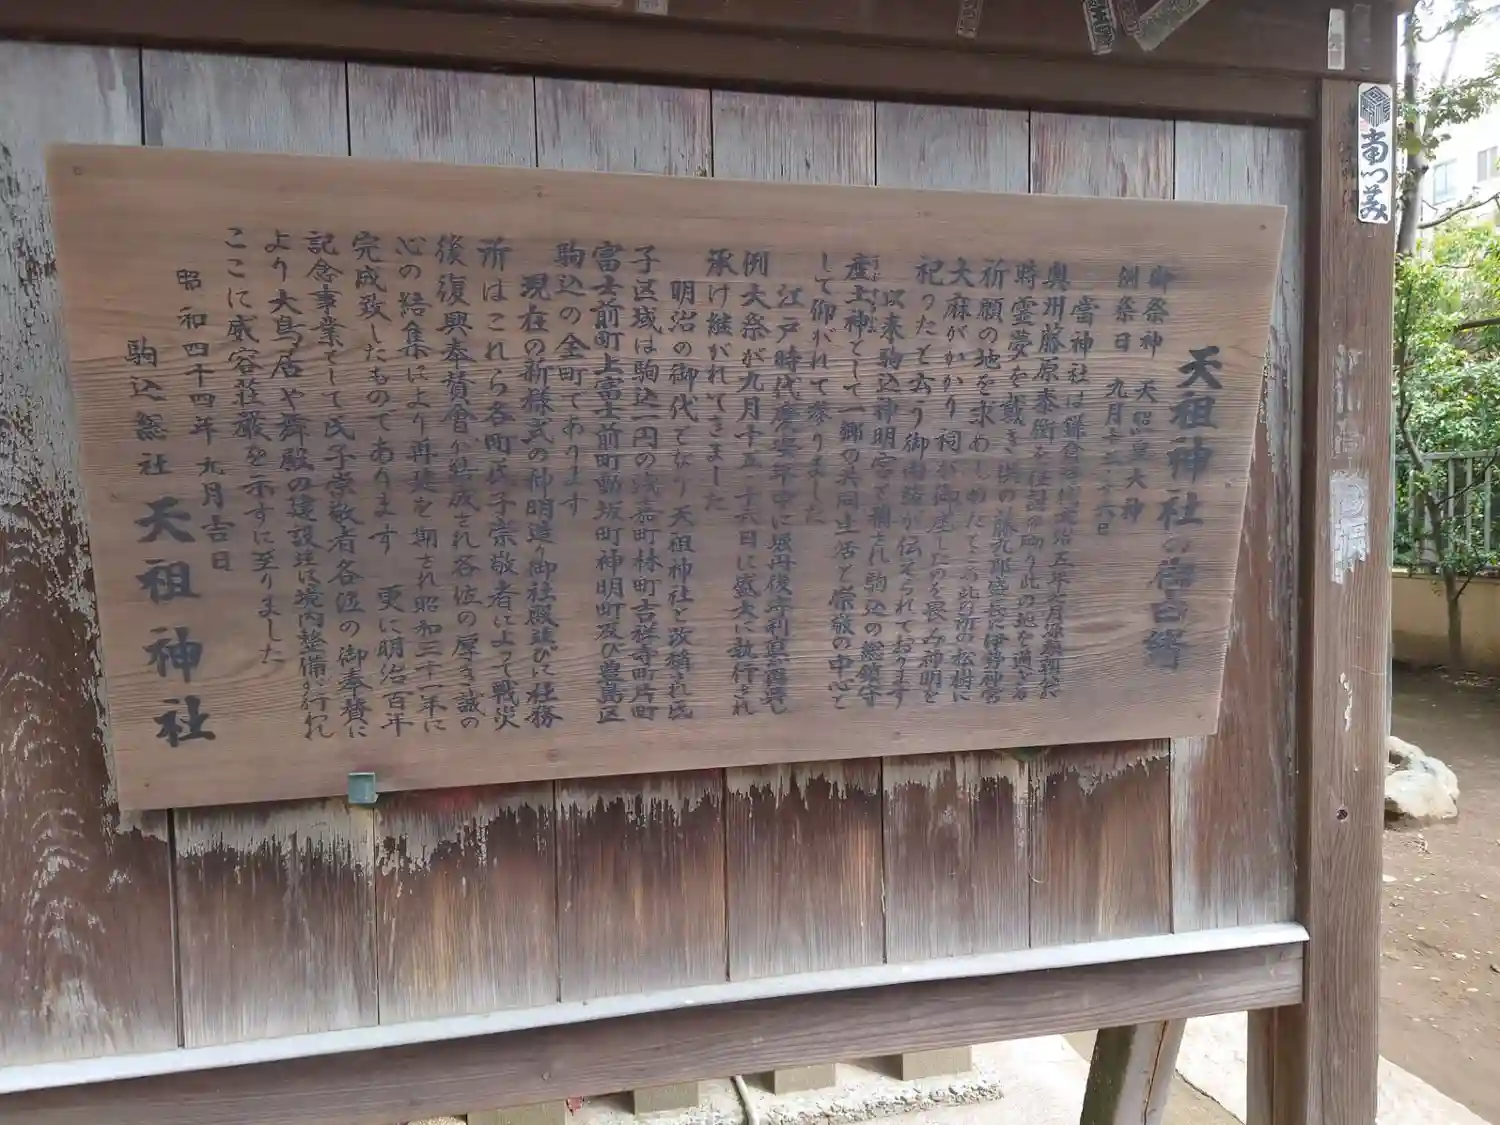 天祖神社の御由緒
御祭神 天照皇大神
例祭日 九月十五、十六日
當神社は鎌倉時代文治五年七月源頼朝公が
奥州藤原泰衡を征討の砌り此の地を過ぐる
時霊夢を戴き供の藤九郎盛長に伊勢神宮
祈願の地を求めしめたところ此の所の松樹に
大麻がかかり祠が御座したのを畏み神明を
祀ったと云う御由緒が伝えられております
以来駒込神明宮と稱され駒込の総鎮守
産土神として一郷の共同生活と崇敬の中心と
して仰がれて参りました
江戸時代慶安年中に堀丹後守利直再興し
例大祭が九月十五、十六日に盛大に執行され
承け継がれてきました
明治の御代となり天祖神社と改稱され氏
子区域は駒込一円の浅嘉町林町吉祥寺町片町
富士前町上富士前町動坂町神明町及び豊島区
駒込の全町であります
現在の新様式の神明造り御社殿並びに社務
所はこれら各町氏子崇敬者によって戦災
後復興奉賛會が結成され各位の厚き誠の
心の結集により再建を期され昭和三十一年に
完成致したものであります 更に明治百年
記念事業として氏子崇敬者各位の御奉賛に
より大鳥居や舞殿の建設並に境内整備が行われ
ここに威容荘厳を示すに至りました
昭和四十四年九月吉日
駒込総社 天祖神社